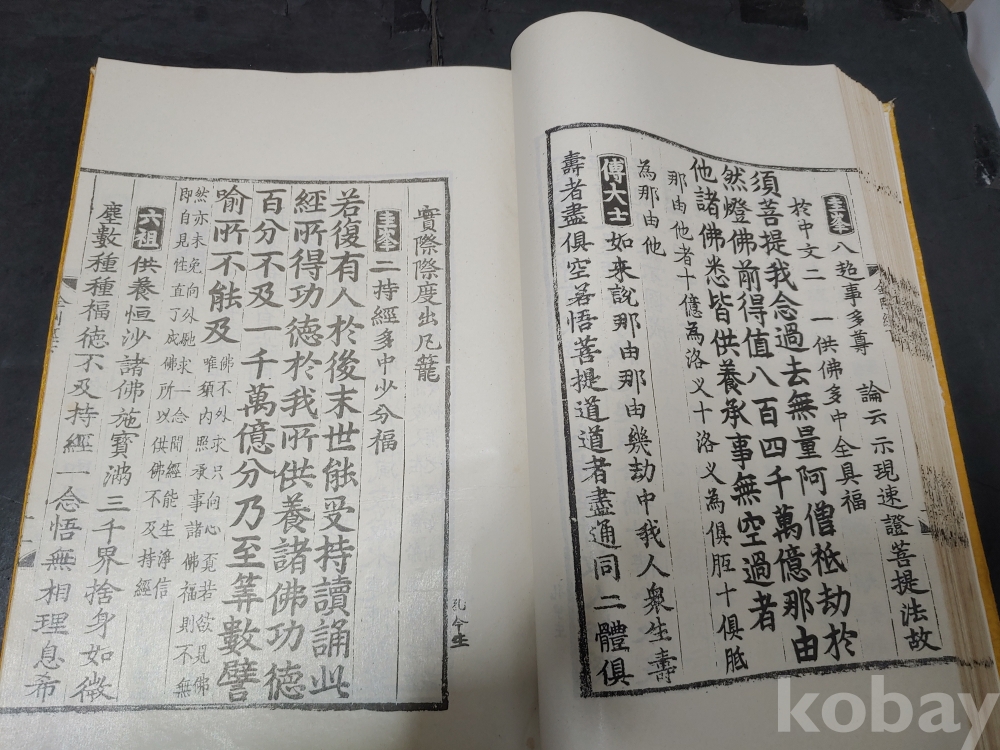 圭峯 八超事多尊 論云示現速證菩提法故
於中文二 一供佛多中全具福
須菩提我念過去無量阿僧祇劫於
然燈佛前得值八百四千萬億那由
他諸佛悉皆供養承事無空過者
那由他者十億為洛义十洛义為俱胝十俱胝
為那由他
傅大士 如來說那由那由幾劫中我人衆生壽
壽者盡俱空若悟菩提道道者盡通同二體俱
實際際度出凡籠
圭峯 二持經多中少分福
若復有人於後末世能受持讀誦此
經所得功德於我所供養諸佛功德
百分不及一千萬億分乃至筭數譬
喻所不能及
佛不外求只向心覓若欲見佛
唯須內照承事諸佛福則不無
然亦未免向外馳求一念間經能生淨信
即自見性直了成佛所以供佛不及持經
六祖 供養恒沙諸佛施寶滿三千界捨身如微
塵數種種福德不及持經一念悟無相理息希
kobay